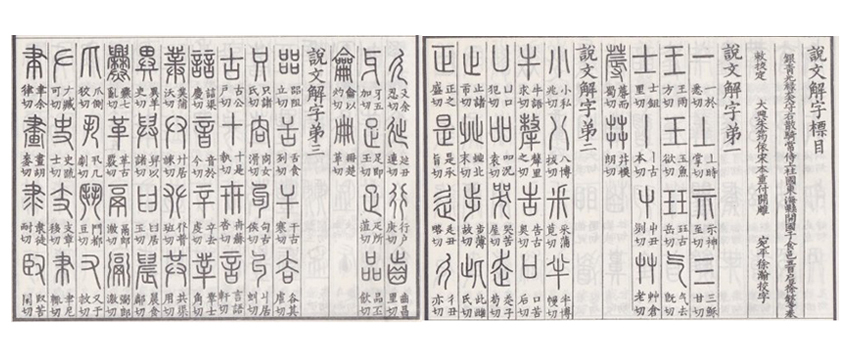 說文解字標目
銀青光祿大夫守右散騎常侍上柱國東海縣開國子食邑五百戶臣徐鉉等奉
敕校定 大興朱筠依宋本重付開雕 宛平徐瀚校字
說文解字弟一
一 於悉切 丄 時掌切 示 神至切 三 穌甘切
王 雨方切 王 魚欲切 玨 古岳切 气 去既切
士 鉏里切 丨 古本切 屮 丑列切 艸 倉老切
蓐 而蜀切 茻 模朗切
說文解字弟二
小 私兆切 八 博拔切 釆 蒲莧切 半 博幔切
牛 語求切 犛 里之切 告 古奧切 口 苦后切
凵 口犯切 吅 況袁切 哭 苦屋切 走 子苟切
止 諸市切 癶 北末切 步 薄故切 此 雌氏切
正 之盛切 是 承旨切 辵 丑略切 彳 丑亦切
廴 余忍切 㢟 丑連切 行 戶庚切 齒 昌里切
牙 五加切 足 即玉切 疋 所菹切 品 丕飲切
龠 以灼切 冊 楚革切
說文解字弟三
㗊 阻立切 舌 食列切 干 古寒切 谷 其虐切
只 諸氏切 㕯 女滑切 句 古侯切 丩 居虯切
古 公戶切 十 是執切 卅 蘇沓切 言 語軒切
誩 渠慶切 音 於今切 䇂 去虔切 丵 士角切
菐 蒲沃切 𠬞 居竦切 𠬜 普班切 共 渠用切
異 羊吏切 舁 以諸切 𦥑 居玉切 䢅 食鄰切
爨 七亂切 革 古覈切 鬲 郎激切 䰜 郎激切
爪 側狡切 丮 几劇切 鬥 都豆切 又 于救切
𠂇 臧可切 史 疏士切 支 章移切 𦘒 尼輒切
聿 余律切 畫 胡麥切 隶 徒耐切 臤 苦閑切